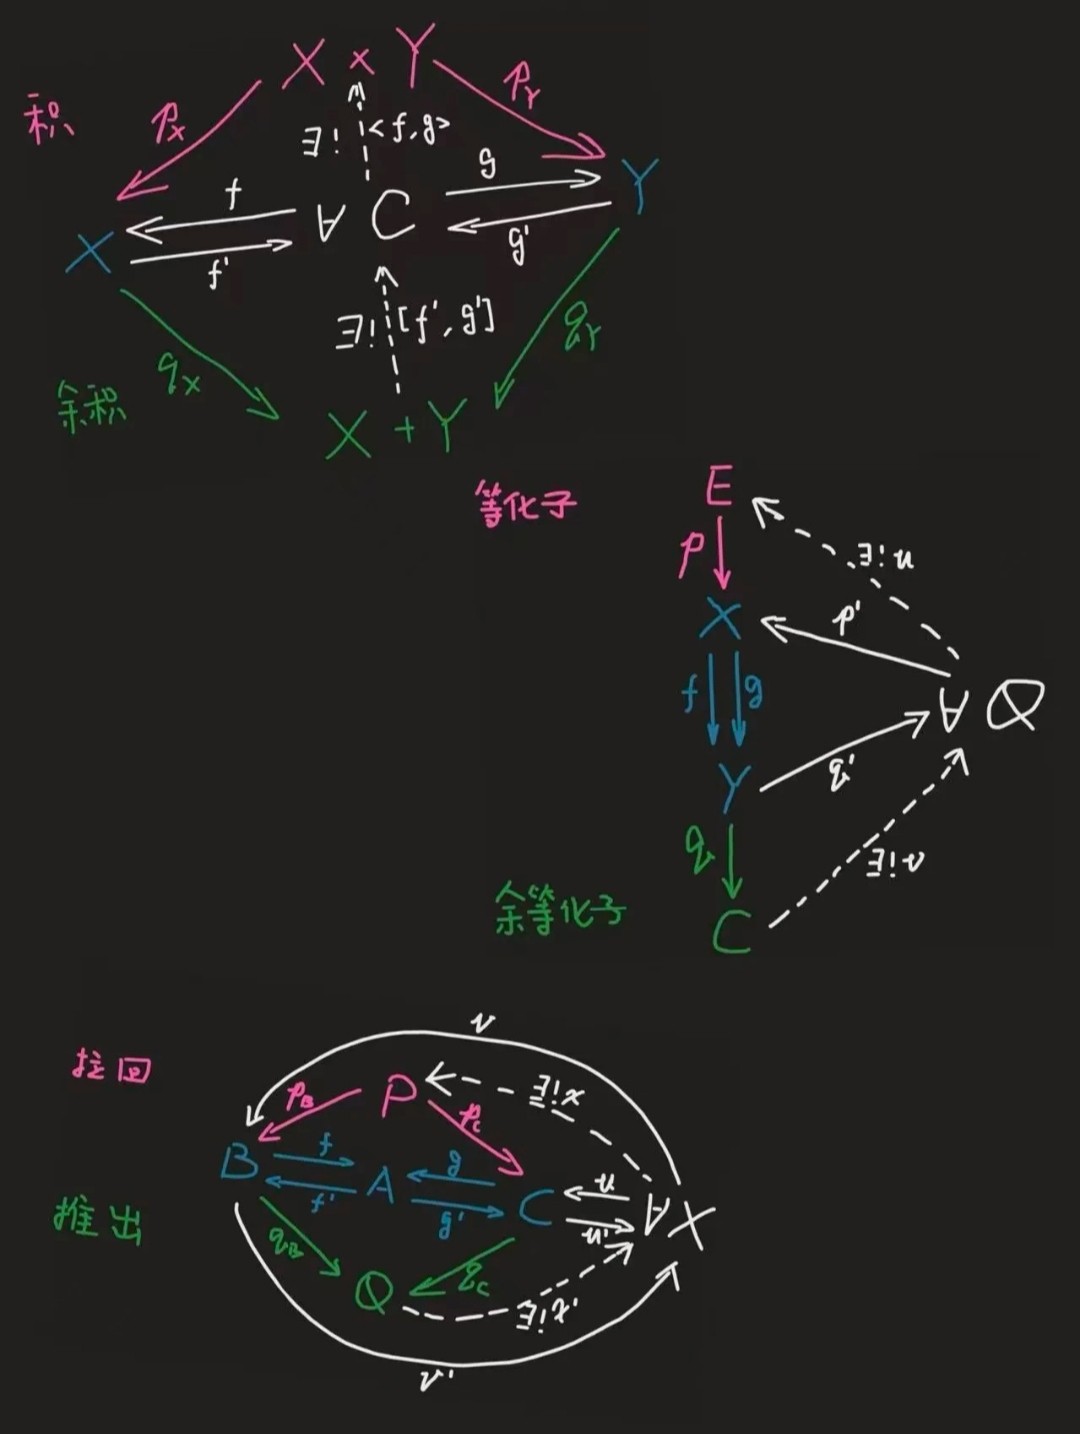 X × Y
积
p_X
p_Y
∃! <f,g>
f
g
X
∀ C
Y
f'
g'
∃! [f', g']
q_X
q_Y
余积
X + Y
等化子
E
p
∃! u
X
p'
f g
∀ Q
Y
q'
q
∃! v
余等化子
C
v
拉回
P
∃! x
p_B
p_C
B
f
A
g
C
u
∀ X
f'
g'
u'
推出
q_B
q_C
Q
∃! x'
v'